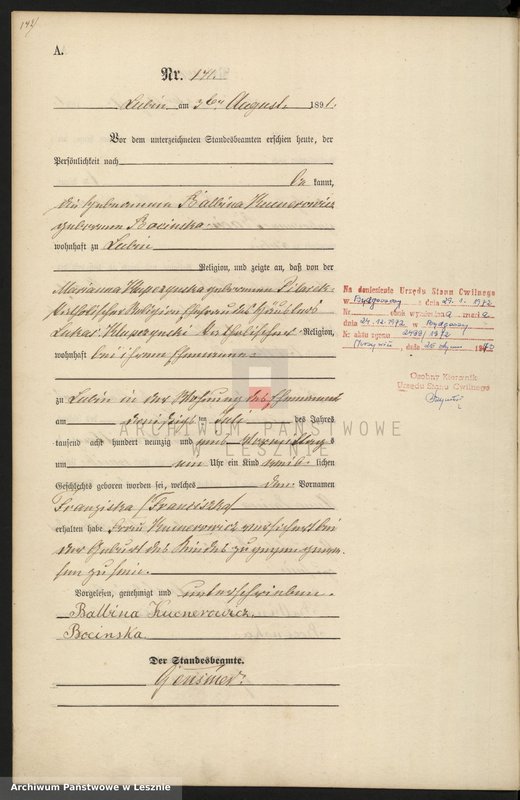 A.
Nr. 141.
Lubin am 3ten August 1891.
Vor dem unterzeichneten Standesbeamten erschien heute, der
Persönlichkeit nach
be kannt,
die Hebamme Balbina Kucnerowicz
geborene Bocinska
wohnhaft zu Lubin
Religion, und zeigte an, daß von der
Marianna Klupczynska geborenen
katholischer Religion, Ehefrau des Häuslers
Lukas Klupczynski katholischer Religion,
wohnhaft bei ihrem Ehemanne
zu Lubin in der Wohnung des Ehemannes
am dreißigsten Juli des Jahres
tausend acht hundert neunzig und eins Vormittags
um ein Uhr ein Kind weib lichen
Geschlechts geboren worden sei, welches den Vornamen
Franziska (Franciszka)
erhalten habe. Frau Kucnerowicz versichert bei
der Geburt des Kindes zugegen gewe-
sen zu sein.
Vorgelesen, genehmigt und unterschrieben.
Balbina Kucnerowicz
Bocinska.
Der Standesbeamte.
Gensmer.
Na doniesienie Urzędu Stanu Cywilnego
w Bydgoszczy z dnia 29. 1. 1972
Nr. obok wymieniona zmarła
dnia 24.12.1972 w Bydgoszczy
Nr aktu zgonu 2499/1972
Krzywiń, dnia 1973
Osobny Kierownik
Urzędu Stanu Cywilnego
ARCHIWUM PAŃSTWOWE
W LESZNIE
Archiwum Państwowe w Lesznie